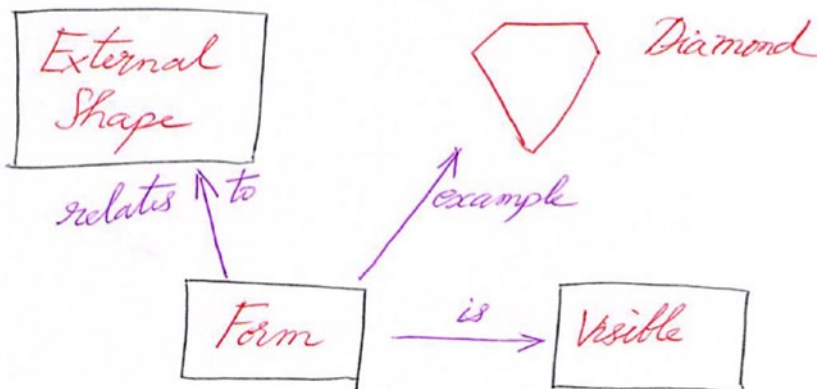 External
Shape
Diamond
relates to
example
Form
is
Visible